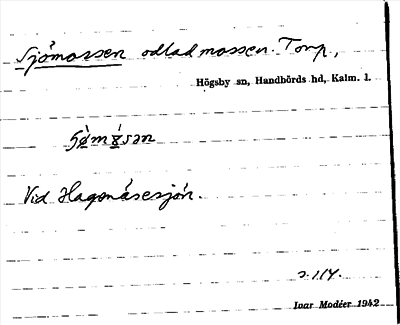 Sjömossen odlad mossen. Torp,
Högsby sn, Handbörds hd, Kalm. l.
Vid Hagonäsesjön.
s. 114.
Ivar Modéer 1942